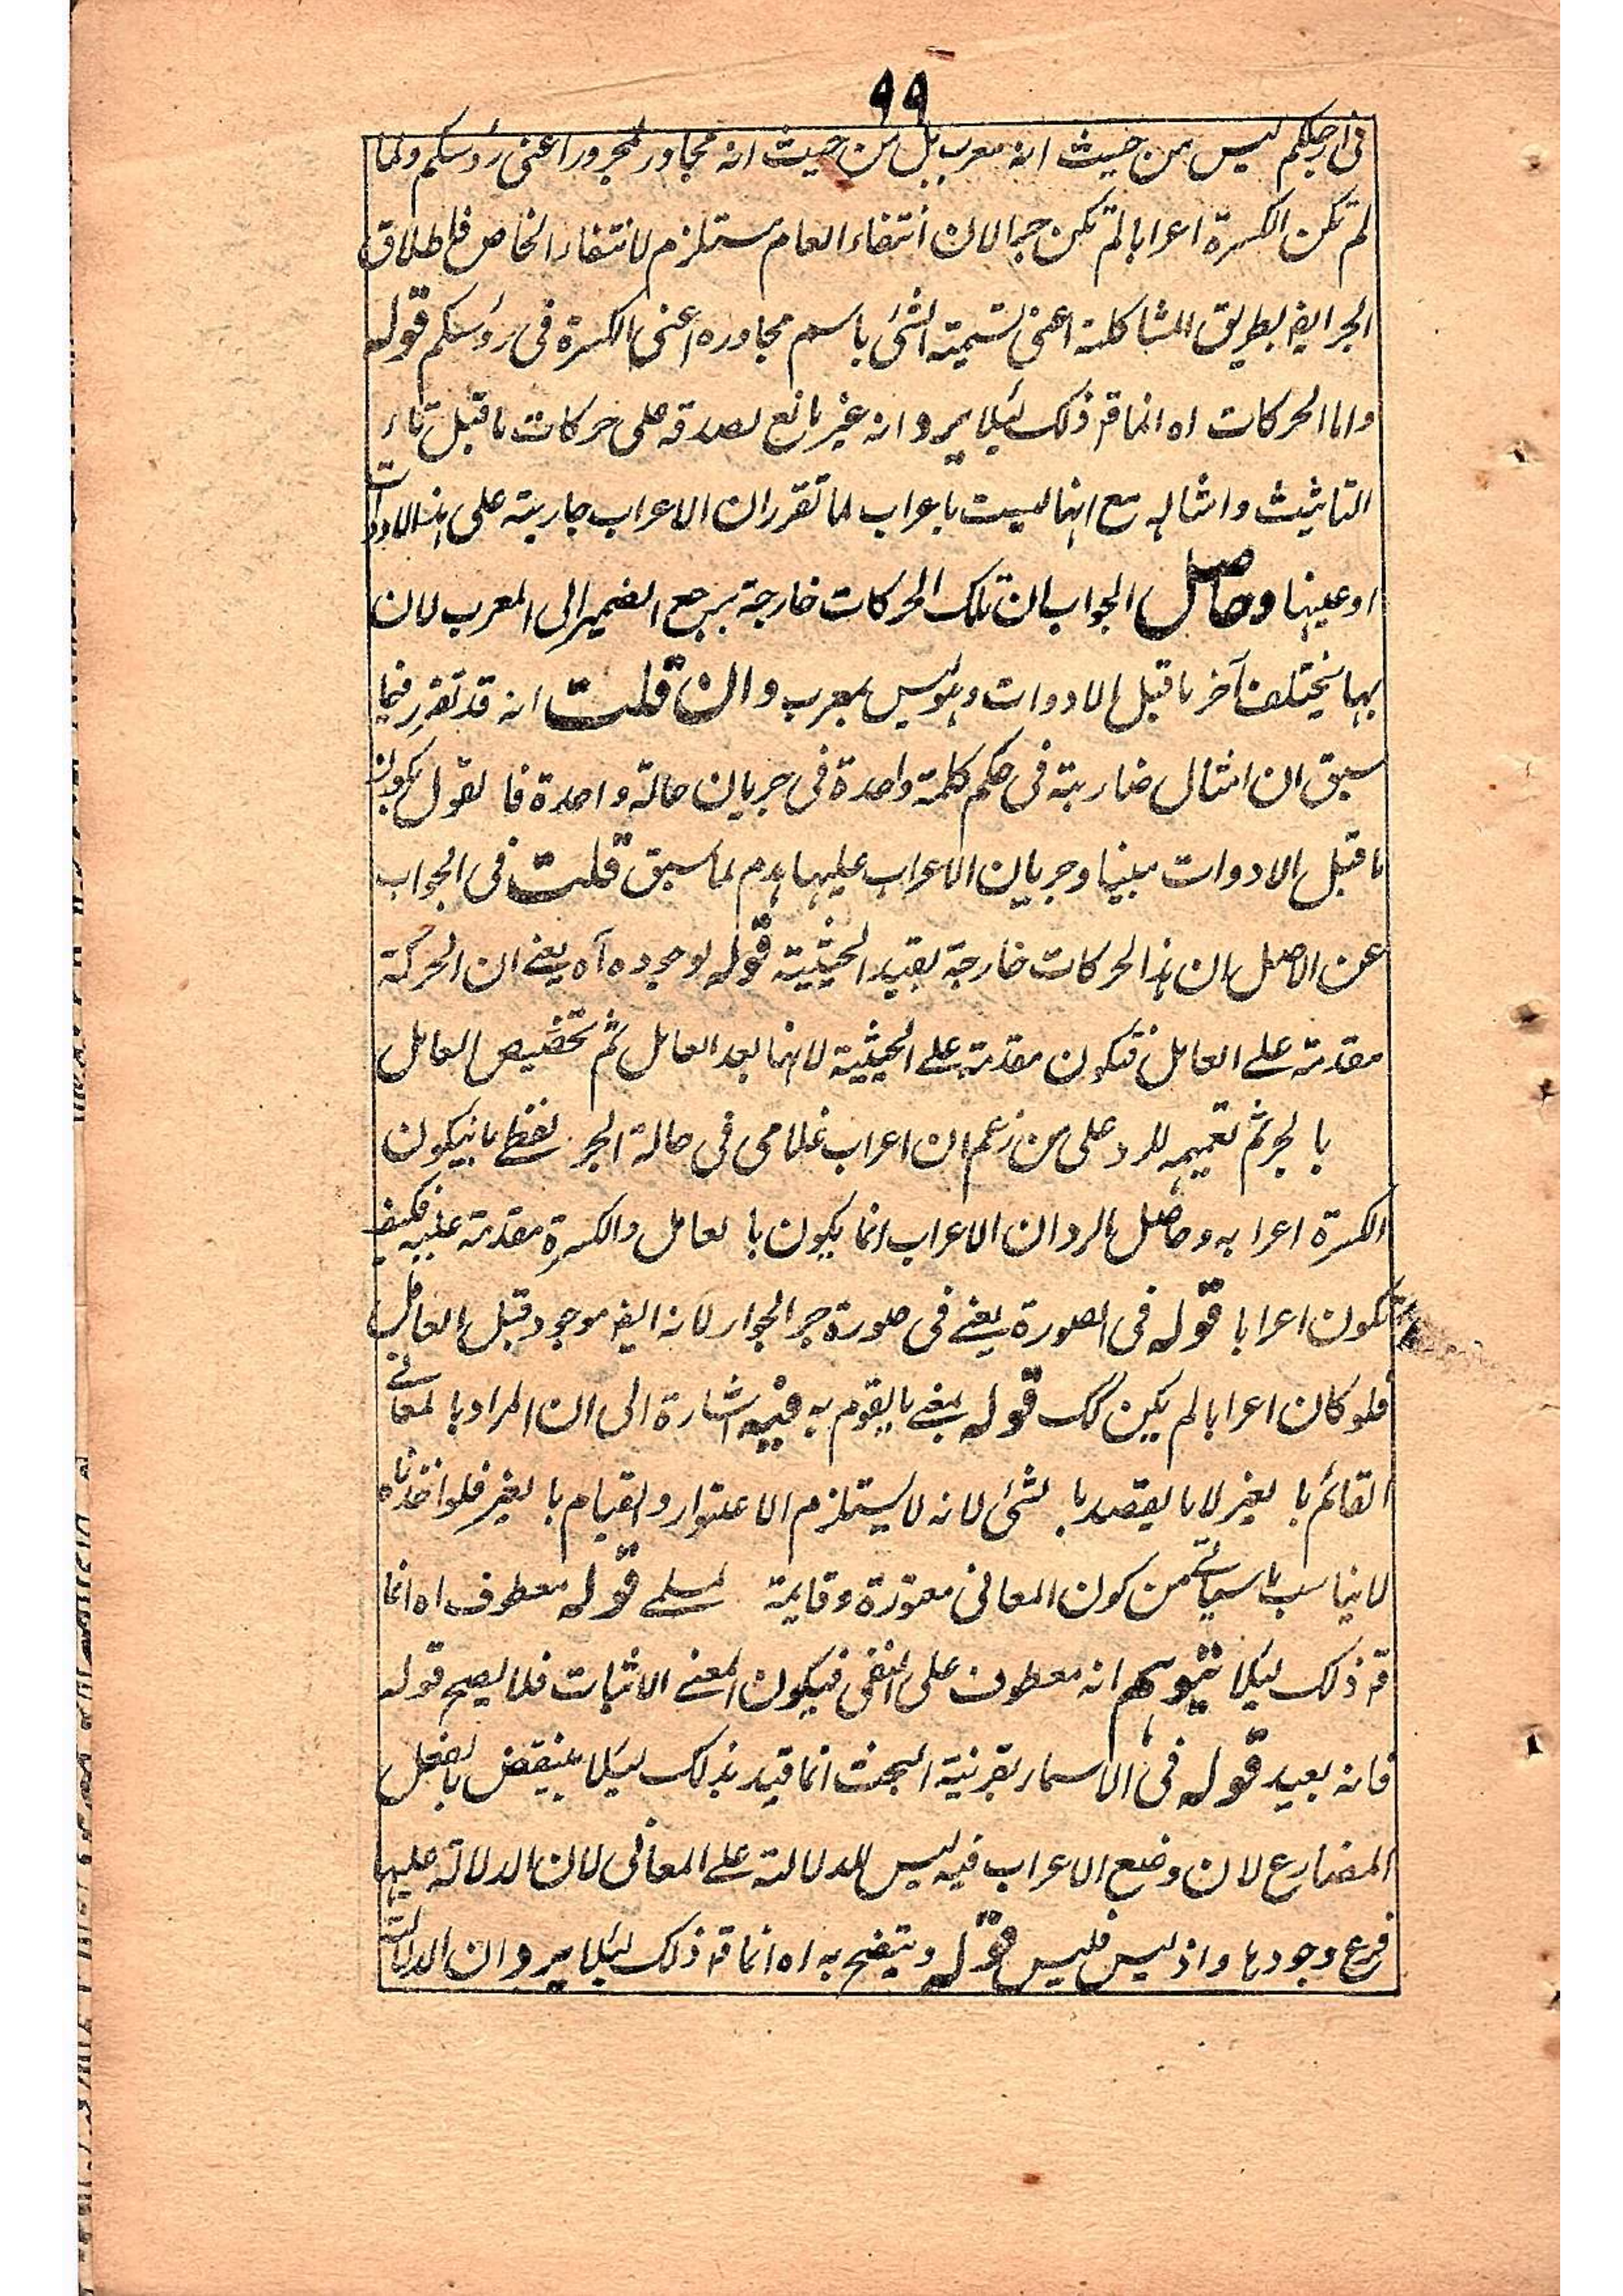 ٩٩
فى ارجلكم ليس من حيث انه معرب بل من حيث انه مجاور لمجرور اعنى رؤسكم ولما
لم تكن الكسرة اعرابا لم تكن جرا لان انتفاء العام مستلزم لانتفاء الخاص فاطلاق
الجر ايضا بطريق المشاكلة اعنى تسمية الشئ باسم مجاوره اعنى الكسرة فى رؤسكم قوله
واما الحركات اه انما قد ذلك لئلا يرد انه غير مانع لصدقه على حركات ما قبل تاء
التانيث وامثاله مع انها ليست باعراب لما تقرر ان الاعراب جارية على هذه الادوات
او عينها وحاصل الجواب ان تلك الحركات خارجة برجع الضمير الى المعرب لان
بها يختلف آخر ما قبل الادوات وهو ليس بمعرب وان قلت انه قد تقرر فيما
سبق ان امثال ضاربة فى حكم كلمة واحدة فى جريان حالة واحدة فالقول بكون
ما قبل الادوات مبنيا وجريان الاعراب عليها هدم لما سبق قلت فى الجواب
عن الاصل ان هذا الحركات خارجة بقيد الحيثية قوله لوجوده آه يعنے ان الحركة
مقدمة علے العامل فتكون مقدمة علے الحيثية لانها بعد العامل ثم تخصيص العامل
بالجر ثم تعميمه للرد على من زعم ان اعراب غلامى فى حالة الجر لفظے بان يكون
الكسرة اعرابه وحاصل الرد ان الاعراب انما يكون بالعامل والكسرة مقدمة عليه فكيف
تكون اعرابا قوله فى الصورة يعنے فى صورة جر الجوار لانه ايضا موجود قبل العامل
فلو كان اعرابا لم يكن كك قوله يعنے ما يقوم به فيه اشارة الى ان المراد بالمعانے
القائم بالغير لا ما يقصد بالشئ لانه لا يستلزم الاعتوار والقيام بالغير فلو اخذناه
لا يناسب ما سياتے من كون المعانى معتورة وقايمة لمسلمے قوله معطوف اه انما
قد ذلك لئلا يتوهم انه معطوف على النفى فيكون المعنے الاثبات فلا يصح قوله
فانه بعيد قوله فى الاسماء بقرينة البحث انما قيد بذلك لئلا ينتقض بالفعل
المضارع لان وضع الاعراب فيه ليس للدلالة علے المعانى لان الدلالة عليها
فرع وجودها واذ ليس فليس قوله ويتضح به اه انما قد ذلك لئلا يرد ان الدلالة